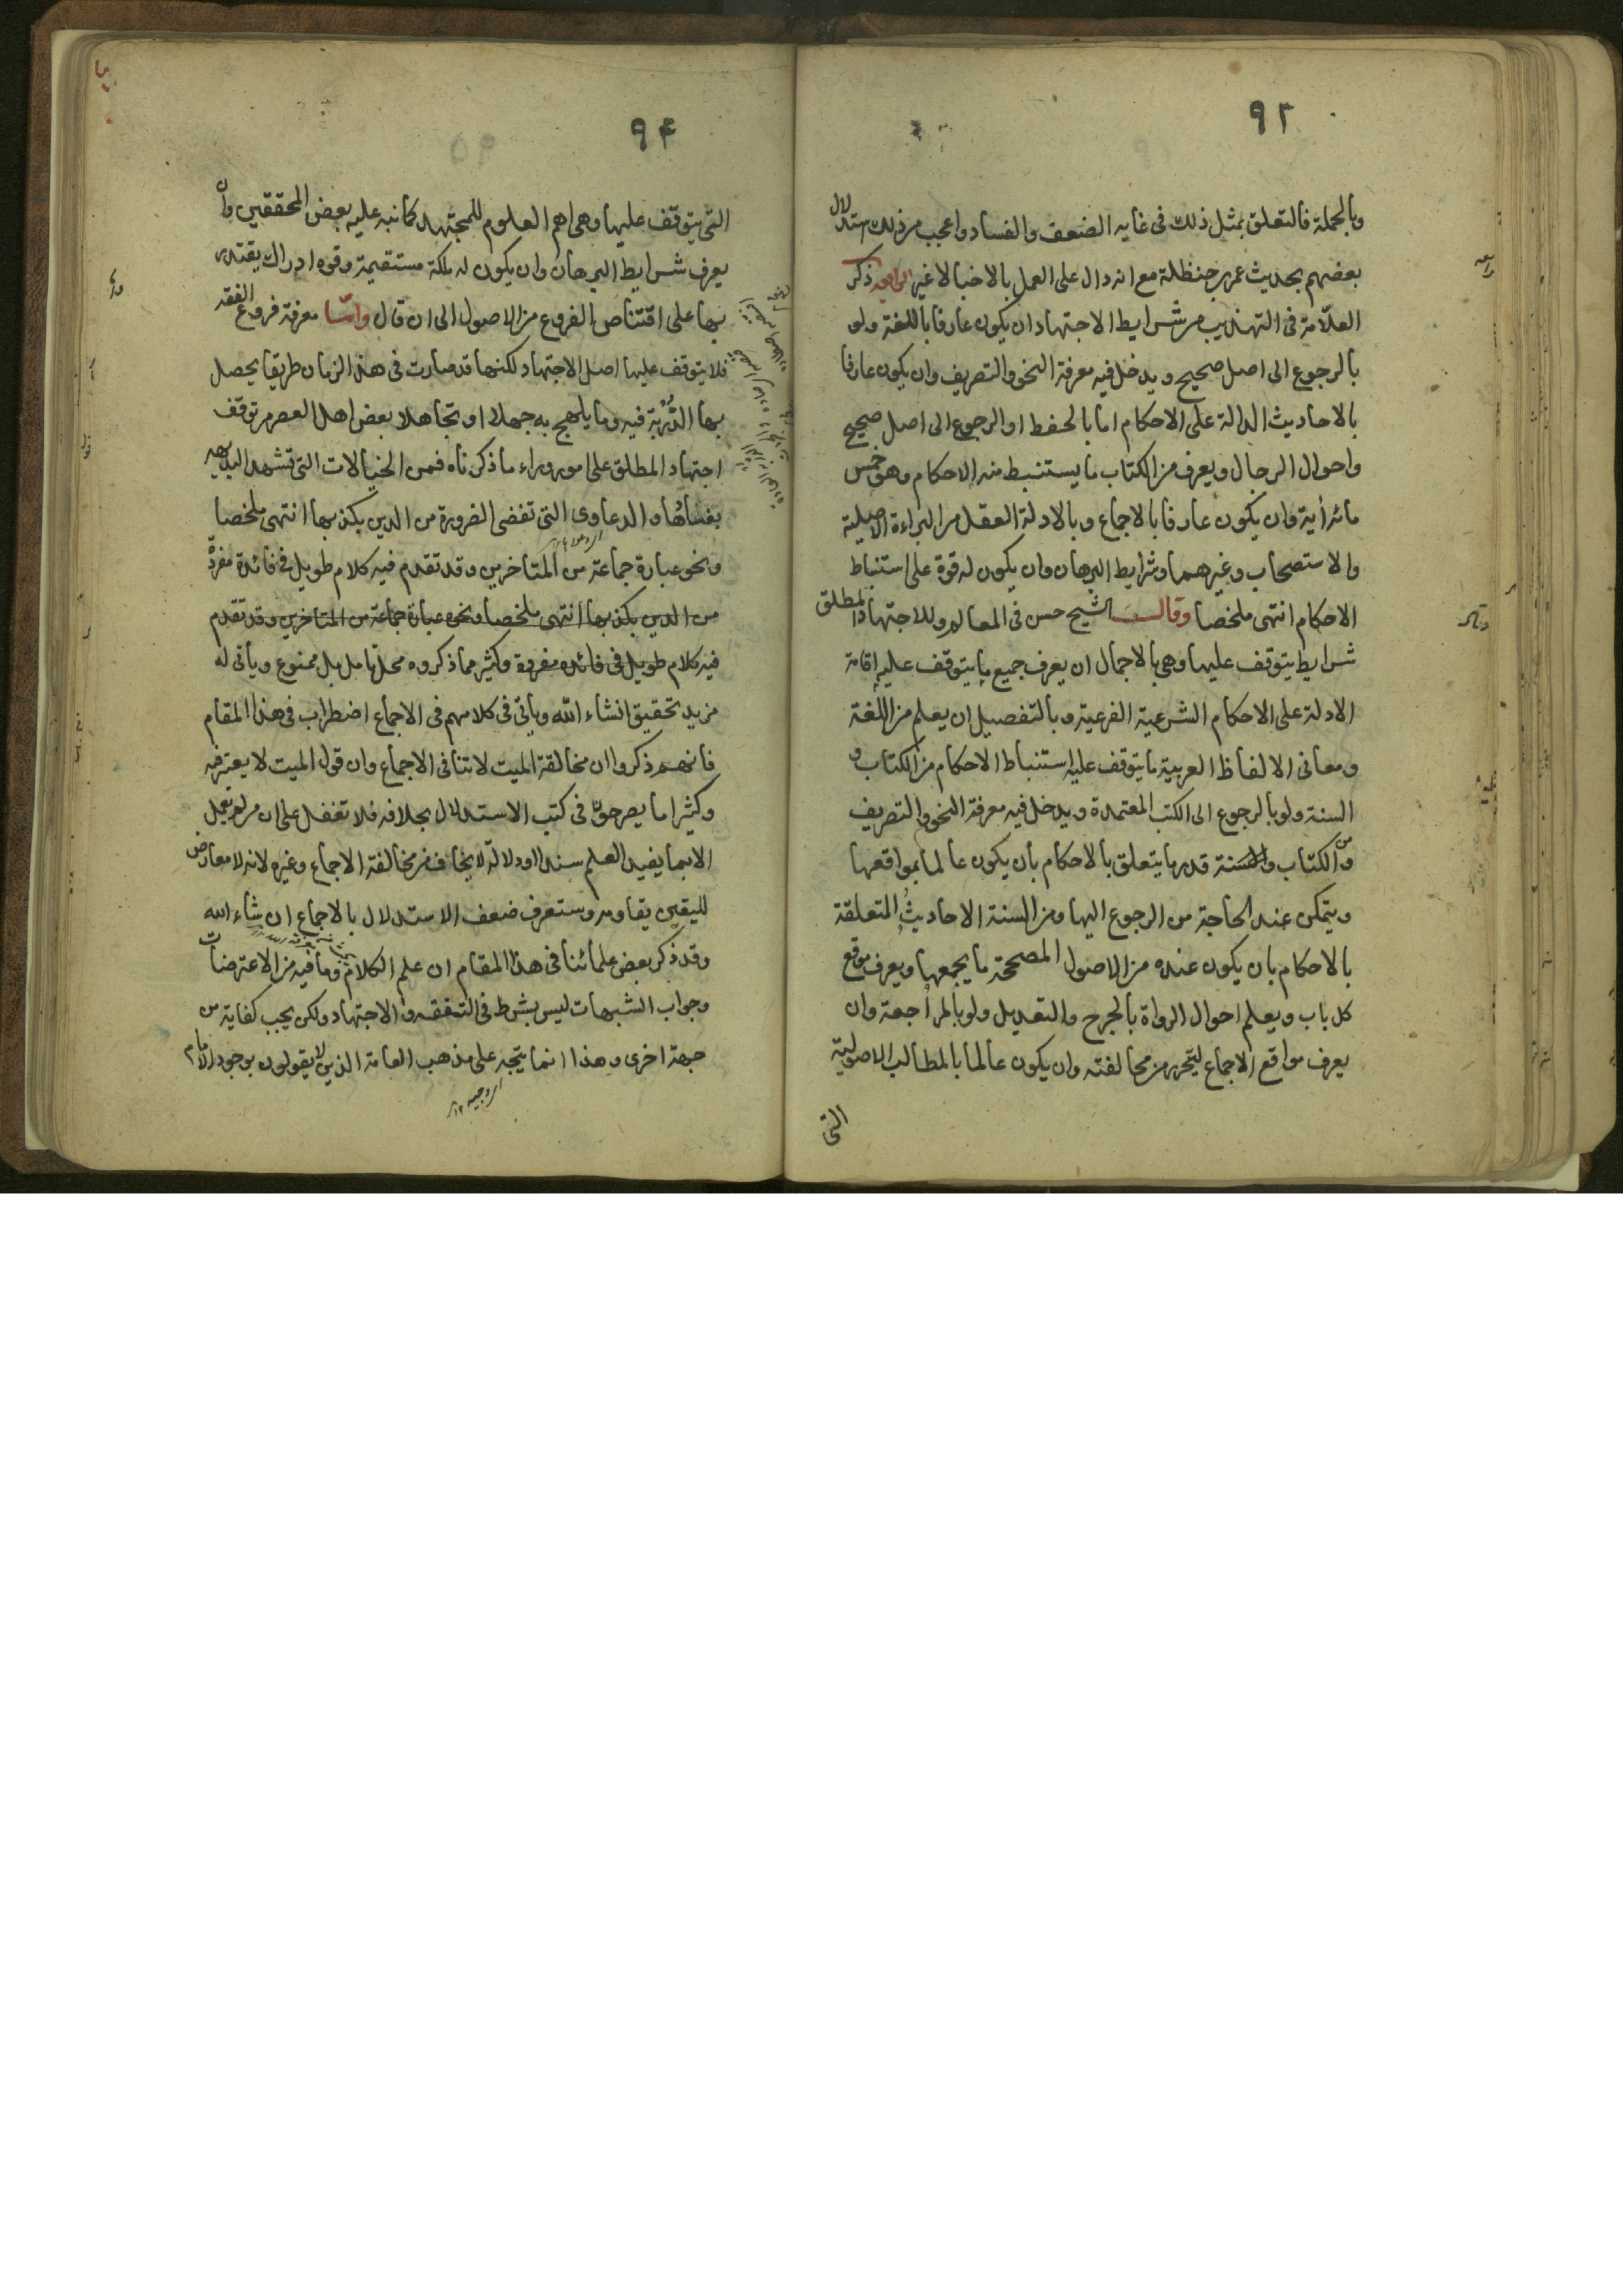 ٩٢
وبالجملة فالتعلق بمثل ذلك فى غايه الضعف والفساد واعجب من ذلك استدلال
بعضهم بحديث عمر بن حنظلة مع انه دال على العمل بالاخبار لا غير الرابعه ذكر
العلّامة فى التهذيب من شرايط الاجتهاد ان يكون عارفا باللغة ولو
بالرجوع الى اصل صحيح ويدخل فيه معرفة النحو والتصريف وان يكون عارفا
بالاحاديث الدالة على الاحكام اما بالحفظ او الرجوع الى اصل صحيح
واحوال الرجال ويعرف من الكتاب ما يستنبط منه الاحكام وهو خمس
مائة أية وان يكون عارفا بالاجماع وبالادلة العقل من البراءة الاصلية
والاستصحاب وغيرهما وشرايط البرهان وان يكون له قوة على استنباط
الاحكام انتهى ملخصا وقال الشيخ حسن فى المعالم وللاجتهاد المطلق
شرايط يتوقف عليها وهى بالاجمال ان يعرف جميع ما يتوقف عليه إقامة
الادلة على الاحكام الشرعية الفرعية وبالتفصيل ان يعلم من اللغة
ومعانى الالفاظ العربية ما يتوقف عليه استنباط الاحكام من الكتاب و
السنة ولو بالرجوع الى الكتب المعتمدة ويدخل فيه معرفة النحو والتصريف
ومن الكتاب والسنة قدر ما يتعلق بالاحكام بأن يكون عالما بمواقعها
ويتمكن عند الحاجة من الرجوع اليها ومن السنة الاحاديث المتعلقة
بالاحكام بان يكون عنده من الاصول المصححة ما يجمعها ويعرف موقع
كل باب ويعلم احوال الرواة بالجرح والتعديل ولو بالمراجعة وان
يعرف مواقع الاجماع ليتحرر من مخالفته وان يكون عالما بالمطالب الاصولية
التى
٩٤
التى يتوقف عليها وهى اهم العلوم للمجتهد كما نبه عليه بعض المحققين وان
يعرف شرايط البرهان وان يكون له ملكة مستقيمة وقوه ادراك يقتدر
بها على اقتناص الفروع من الاصول الى ان قال وامّا معرفة فروع الفقه
فلا يتوقف عليها اصل الاجتهاد لكنها قد صارت فى هذا الزمان طريقا يحصل
بها الدُّرْبَة فيه وما يلهج به جهلا او تجاهلا بعض اهل العصر من توقف
اجتهاد المطلق على امور وراء ما ذكرناه فمن الخيالات التى تشهد البديهه
بفسادها والدعاوى التى تفضى الضرورة من الدين بكذبها انتهى ملخصا
ونحو عبارة جماعة من المتاخرين وقد تقدم فيه كلام طويل فى فائدة مفردة
من الدين بكذبها انتهى ملخصا ونحوه عبارة جماعة من المتاخرين وقد تقدم
فيه كلام طويل فى فائده مفردة وكثير مما ذكروه محل تامل بل ممنوع ويأتى له
مزيد تحقيق انشاء الله ويأتى فى كلامهم فى الاجماع اضطراب فى هذا المقام
فانهم ذكروا ان مخالفة الميت لا تنافى الاجماع وان قول الميت لا يعتد به
وكثيرا ما يصرحون فى كتب الاستدلال بخلافه فلا تغفل على ان من لم يعمل
الا بما يفيد العلم سندا او دلالة لا يخاف من مخالفة الاجماع وغيره لانه لا معارض
لليقين يقاومه وستعرف ضعف الاستدلال بالاجماع ان شاء الله
وقد ذكر بعض علمائنا فى هذا المقام ان علم الكلام وما فيه من الاعترضات
وجواب الشبهات ليس بشرط فى التفقه والاجتهاد ولكن يجب كفاية من
جهة اخرى وهذا انما يتجه على مذهب العامة الذين لا يقولون بوجود الامام